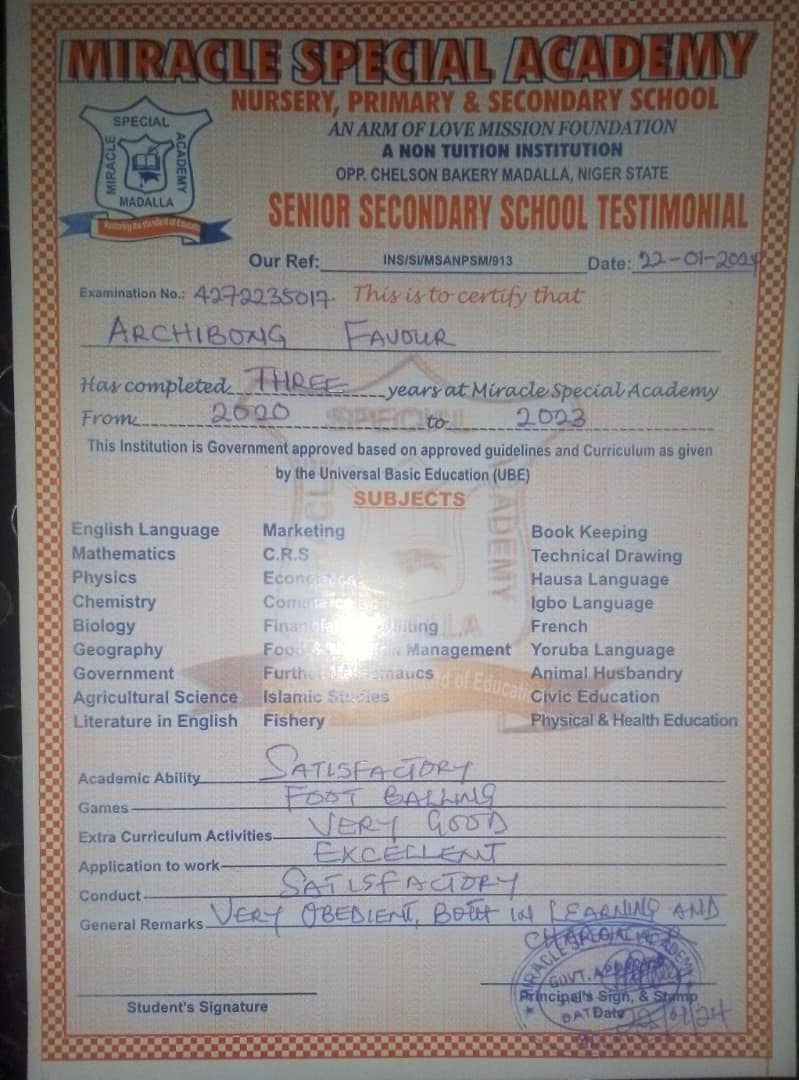 MIRACLE SPECIAL ACADEMY
NURSERY, PRIMARY & SECONDARY SCHOOL
AN ARM OF LOVE MISSION FOUNDATION
A NON TUITION INSTITUTION
OPP. CHELSON BAKERY MADALLA, NIGER STATE
SPECIAL
MIRACLE
ACADEMY
MADALLA
Restoring the standard of Education
SENIOR SECONDARY SCHOOL TESTIMONIAL
Our Ref: INS/SI/MSANPSM/913 Date: 22-01-2024
Examination No.: 4272235017 This is to certify that
ARCHIBONG FAVOUR
Has completed THREE years at Miracle Special Academy
From 2020 to 2023
This Institution is Government approved based on approved guidelines and Curriculum as given
by the Universal Basic Education (UBE)
SUBJECTS
English Language Marketing Book Keeping
Mathematics C.R.S Technical Drawing
Physics Economics Hausa Language
Chemistry Commerce Igbo Language
Biology Igbo French
Geography Management Yoruba Language
Government Animal Husbandry
Agricultural Science Islamic Studies Civic Education
Literature in English Fishery Physical & Health Education
Academic Ability SATISFACTORY
Games FOOT BALLING
Extra Curriculum Activities VERY GOOD
Application to work EXCELLENT
Conduct SATISFACTORY
General Remarks VERY OBEDIENT, BOTH IN LEARNING AND
CHARACTER
MIRACLE SPECIAL ACADEMY
GOVT. APPROVED
Student's Signature Principal's Sign, & Stamp
Date 22/01/24